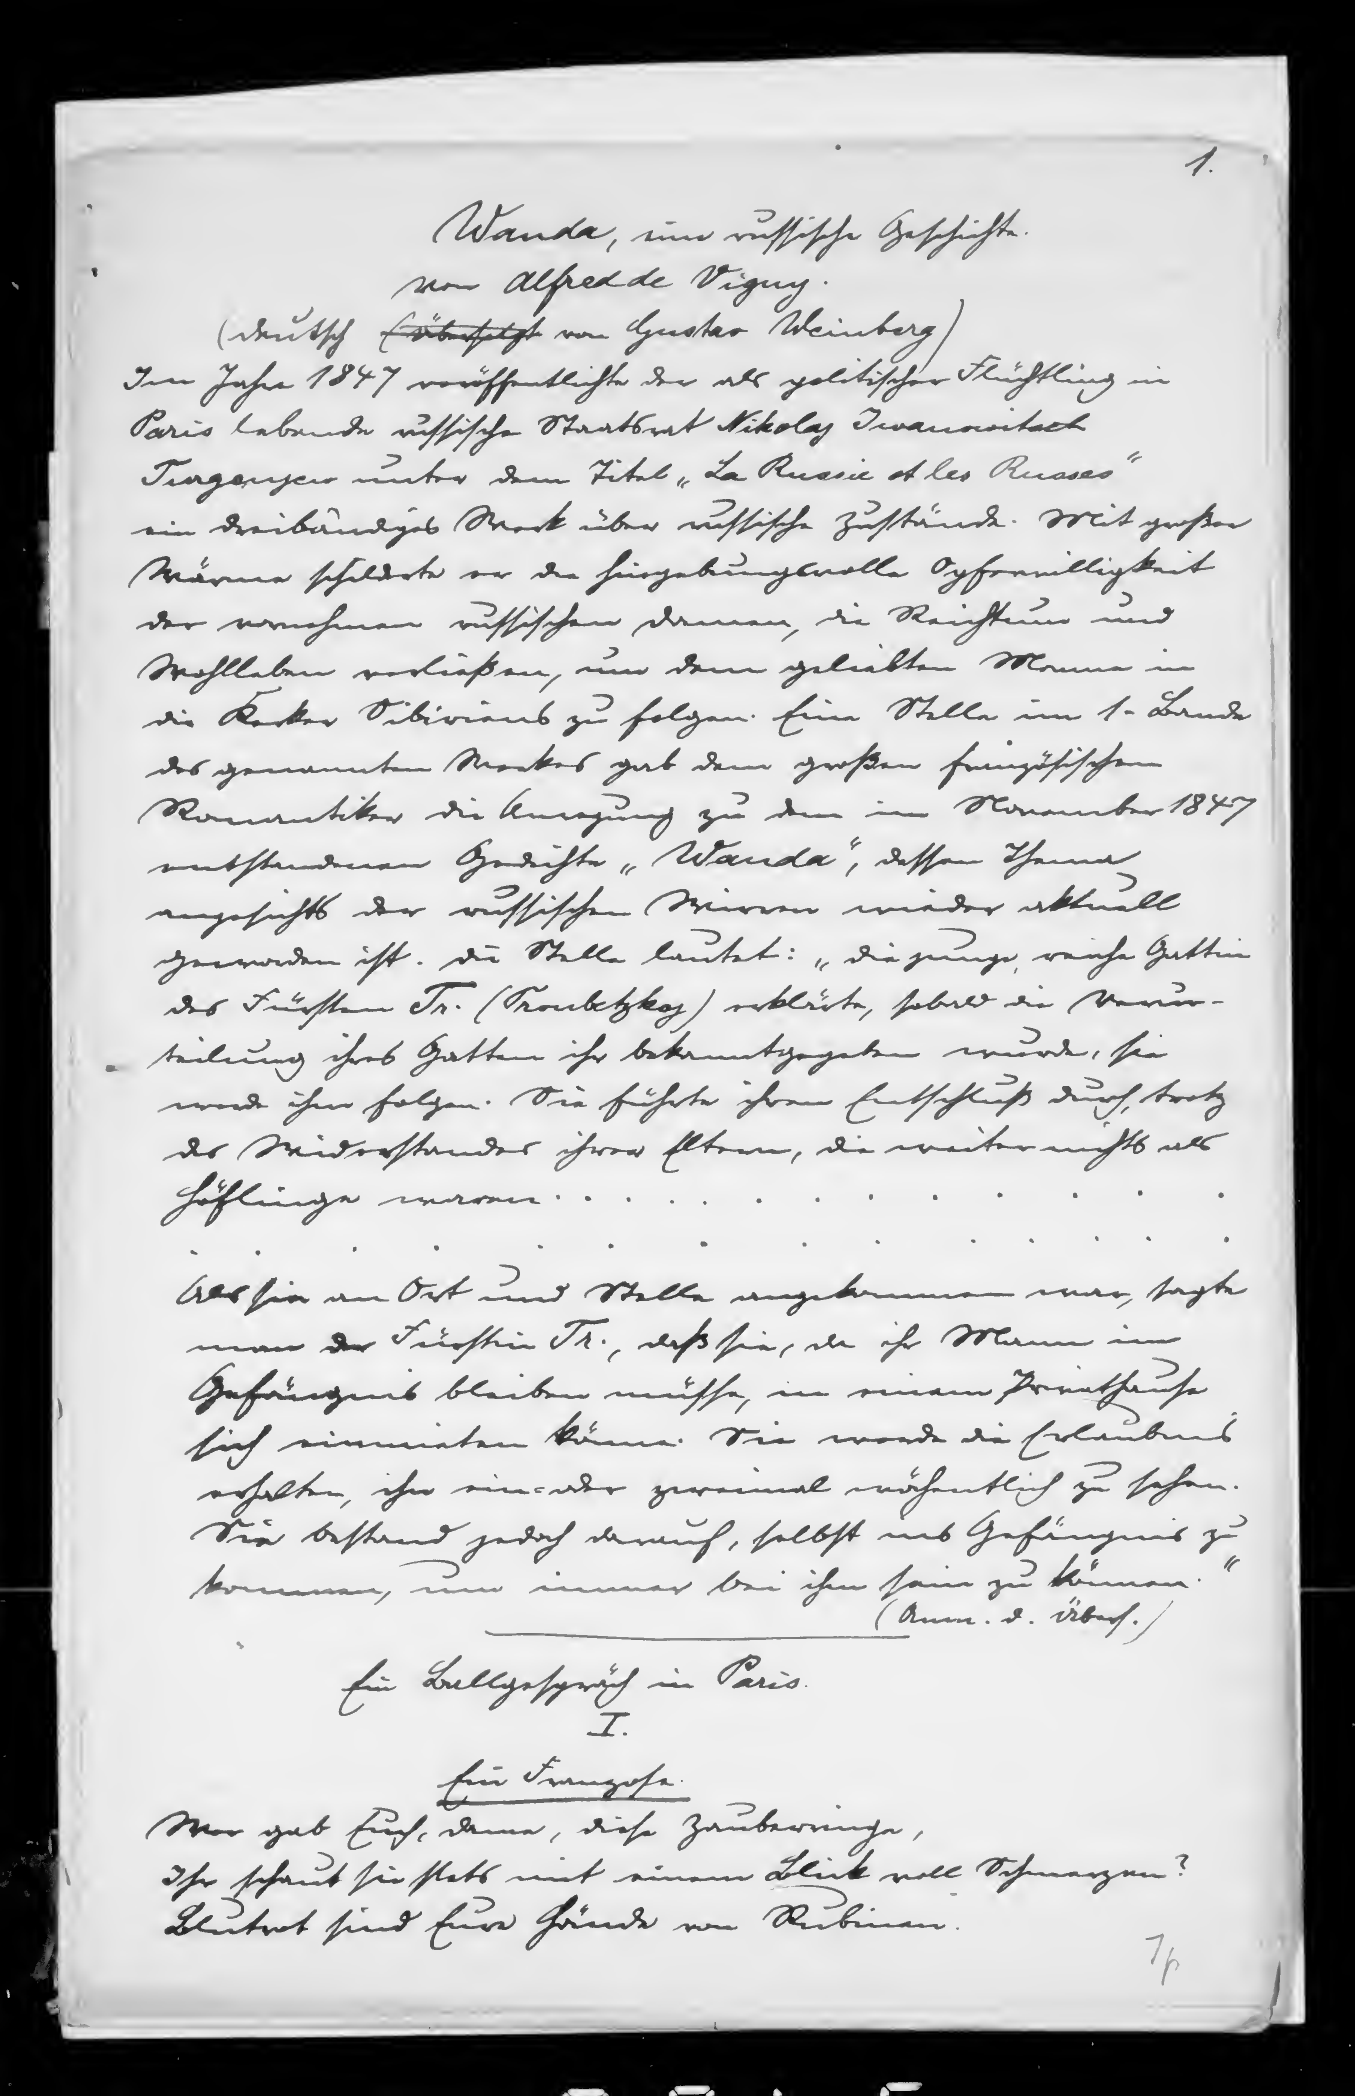 1.
Wanda, eine russische Geschichte.
von Alfred de Vigny.
(deutsch (Übersetzt von Gustav Weinberg)
Im Jahre 1847 veröffentlichte der als politischer Flüchtling in
Paris lebende russische Staatsrat Nikolaj Iwanowitsch
Turgenjew unter dem Titel „La Russie et les Russes"
ein dreibändiges Werk über russische Zustände. Mit großer
Wärme schilderte er die hingebungsvolle Opferwilligkeit
der vornehmen russischen Damen, die Reichtum und
Wohlleben verließen, um dem geliebten Manne in
die Kerker Sibiriens zu folgen. Eine Stelle im 1. Bande
des genannten Werkes gab dem großen französischen
Romantiker die Anregung zu dem im November 1847
entstandenen Gedichte „Wanda", dessen Thema
angesichts der russischen Wirren wieder aktuell
geworden ist. Die Stelle lautet: „die junge, reiche Gattin
des Fürsten Tr. (Troubetzkoj) erklärte, sobald die Verur-
teilung ihres Gatten ihr bekanntgegeben wurde, sie
werde ihm folgen. Sie führte ihren Entschluß durch, trotz
des Widerstandes ihrer Eltern, die weiter nichts als
Höflinge waren. . . . . . . . . . . .
. . . . . . . . . . . . . .
Als sie an Ort und Stelle angekommen war, sagte
man der Fürstin Tr., daß sie, da ihr Mann im
Gefängnis bleiben müsse, in einem Privathause
sich einmieten könne. Sie werde die Erlaubnis
erhalten, ihn ein- oder zweimal wöchentlich zu sehen.
Sie bestand jedoch darauf, selbst ins Gefängnis zu
kommen, um immer bei ihm sein zu können."
(Anm. d. Übers.)
Ein Ballgespräch in Paris.
I.
Ein Franzose.
Wer gab Euch, Dame, diese Zauberringe,
Ihr schaut sie stets mit einem Blick voll Schmerzen?
Blutrot sind Eure Hände von Rubinen.